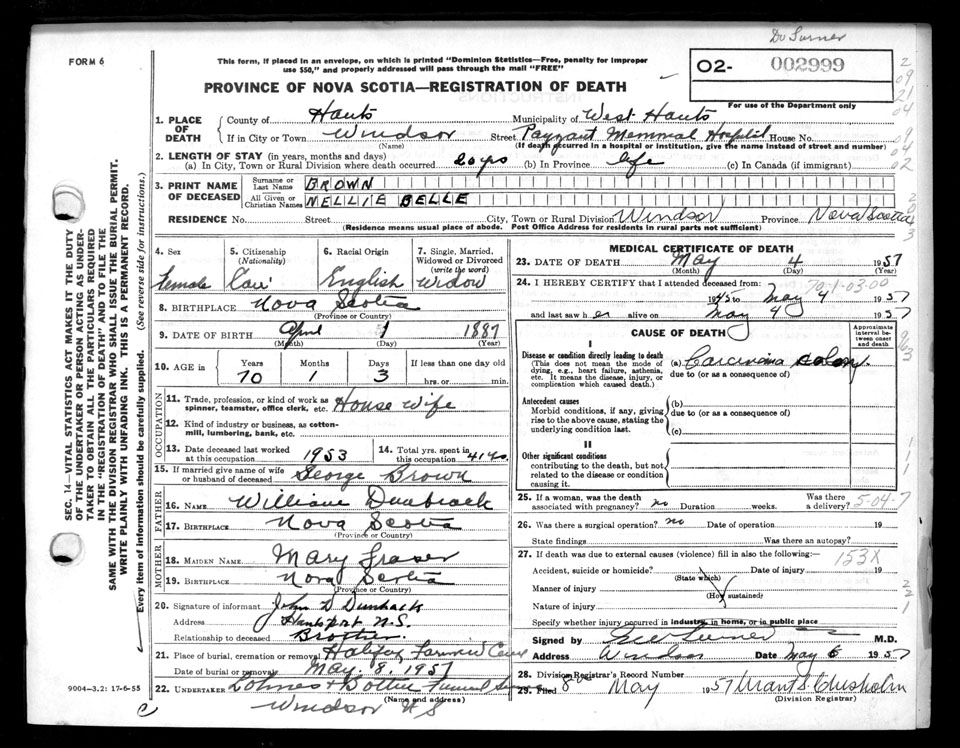 Dr Turner
FORM 6
This form, if placed in an envelope, on which is printed "Dominion Statistics—Free, penalty for improper
use $50," and properly addressed will pass through the mail "FREE"
O2- 002999
For use of the Department only
PROVINCE OF NOVA SCOTIA—REGISTRATION OF DEATH
1. PLACE OF DEATH
County of Hants Municipality of West Hants
If in City or Town Windsor Street Payzant Memorial Hospital House No.
(Name) (If death occurred in a hospital or institution, give the name instead of street and number)
2. LENGTH OF STAY (in years, months and days)
(a) In City, Town or Rural Division where death occurred 20 yrs (b) In Province life (c) In Canada (if immigrant)
3. PRINT NAME OF DECEASED
Surname or Last Name BROWN
All Given or Christian Names MELLIE BELLE
RESIDENCE No. Street City, Town or Rural Division Windsor Province Nova Scotia
(Residence means usual place of abode. Post Office Address for residents in rural parts not sufficient)
4. Sex
Female
5. Citizenship
(Nationality)
Can'
6. Racial Origin
English
7. Single, Married,
Widowed or Divorced
(write the word)
Widow
8. BIRTHPLACE Nova Scotia
(Province or Country)
9. DATE OF BIRTH April 1 1887
(Month) (Day) (Year)
10. AGE in Years Months Days If less than one day old
70 1 3 hrs. or min.
OCCUPATION
11. Trade, profession, or kind of work as
spinner, teamster, office clerk, etc. House wife
12. Kind of industry or business, as cotton-
mill, lumbering, bank, etc.
13. Date deceased last worked
at this occupation 1953
14. Total yrs. spent in
this occupation 41 yrs.
15. If married give name of wife
or husband of deceased George Brown
FATHER
16. NAME William Dunbrack
17. BIRTHPLACE Nova Scotia
(Province or Country)
MOTHER
18. MAIDEN NAME Mary Fraser
19. BIRTHPLACE Nova Scotia
(Province or Country)
20. Signature of informant John D Dunback
Address Hantsport N.S.
Relationship to deceased Brother.
21. Place of burial, cremation or removal Halifax
Date of burial or removal May. 8, 1957
22. UNDERTAKER
(Name and address)
Windsor N S
MEDICAL CERTIFICATE OF DEATH
23. DATE OF DEATH May 4 1957
(Month) (Day) (Year)
24. I HEREBY CERTIFY that I attended deceased from: 70-1-03-00
1945 to May 4 1957
and last saw her alive on May 4 1957
CAUSE OF DEATH
Approximate interval between onset and death
I
Disease or condition directly leading to death
(This does not mean the mode of
dying, e.g., heart failure, asthenia,
etc. It means the disease, injury, or
complication which caused death.)
(a) Carcinoma colon
due to (or as a consequence of)
Antecedent causes
Morbid conditions, if any, giving
rise to the above cause, stating the
underlying condition last.
(b)
due to (or as a consequence of)
(c)
II
Other significant conditions
contributing to the death, but not
related to the disease or condition
causing it.
25. If a woman, was the death
associated with pregnancy? no Duration weeks. Was there
a delivery? 5-04-7
26. Was there a surgical operation? no Date of operation 19
State findings Was there an autopsy?
27. If death was due to external causes (violence) fill in also the following:— 153X
Accident, suicide or homicide? Date of injury 19
(State which)
Manner of injury
(How sustained)
Nature of injury
Specify whether injury occurred in industry, in home, or in public place
Signed by Turner M.D.
Address Windsor Date May 6 1957
28. Division Registrar's Record Number
29. Filed 8 May 1957 Grant S. Chisholm
(Division Registrar)
SEC. 14—VITAL STATISTICS ACT MAKES IT THE DUTY
OF THE UNDERTAKER OR PERSON ACTING AS UNDER-
TAKER TO OBTAIN ALL THE PARTICULARS REQUIRED
IN THE "REGISTRATION OF DEATH" AND TO FILE THE
SAME WITH THE DIVISION REGISTRAR WHO SHALL ISSUE THE BURIAL PERMIT.
WRITE PLAINLY WITH UNFADING INK. THIS IS A PERMANENT RECORD.
Every item of information should be carefully supplied. (See reverse side for instructions.)
9004—3.2: 17-6-55